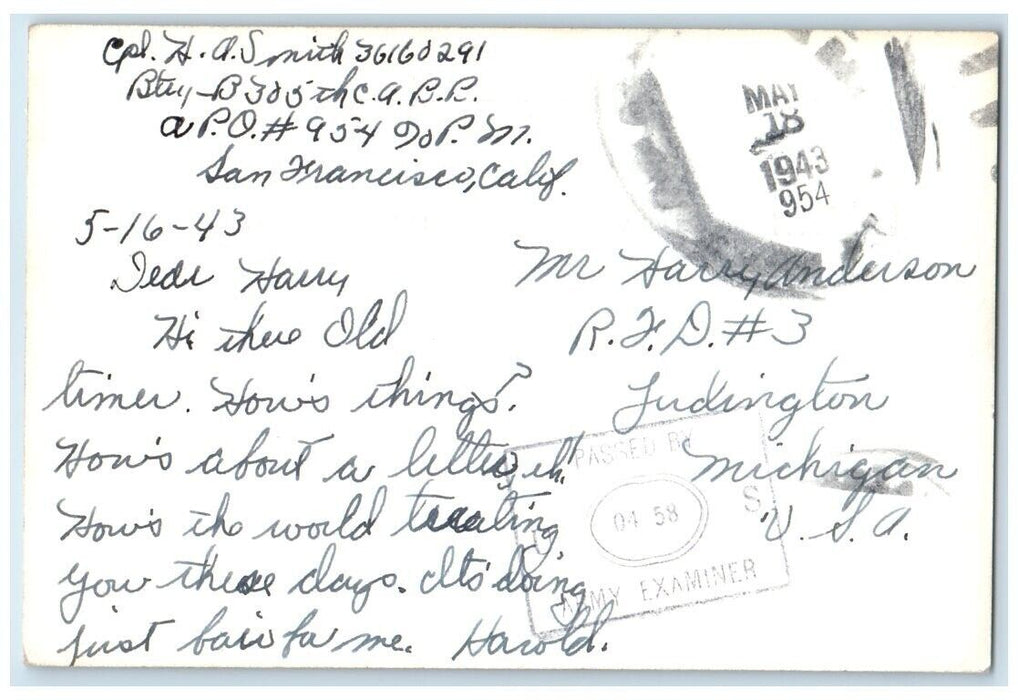 Cpl. H. A. Smith 36160291
Btry-B 305th C.A.B.B.
A.P.O. # 954 % P.M.
San Francisco, Calif.
MAY
18
1943
954
5-16-43
Dear Harry
Hi there Old
timer. How's things?
How's about a letter, eh.
How's the world treating
you these days. Its doing
just fair for me. Harold.
Mr Harry Anderson
R.F.D. # 3
Ludington
Michigan
U. S. A.
PASSED BY
U S
04 58
ARMY EXAMINER